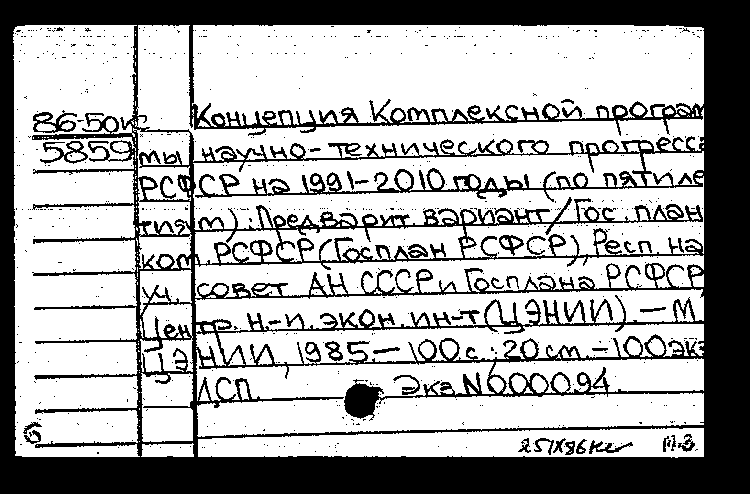 86-50к Концепция Комплексной програм
5859 мы научно-технического прогресса
РСФСР на 1991-2010 годы (по пятиле
тиям): Предварит. вариант/Гос. план.
ком. РСФСР (Госплан РСФСР), Респ. на
уч. совет АН СССР и Госплана РСФСР,
Центр. н.-и. экон. ин-т (ЦЭНИИ). — М.
ЦЭНИИ, 1985. — 100 с.; 20 см. — 100 экз
ДСП. Экз. N 000094.
б
25 IX 86 М.З